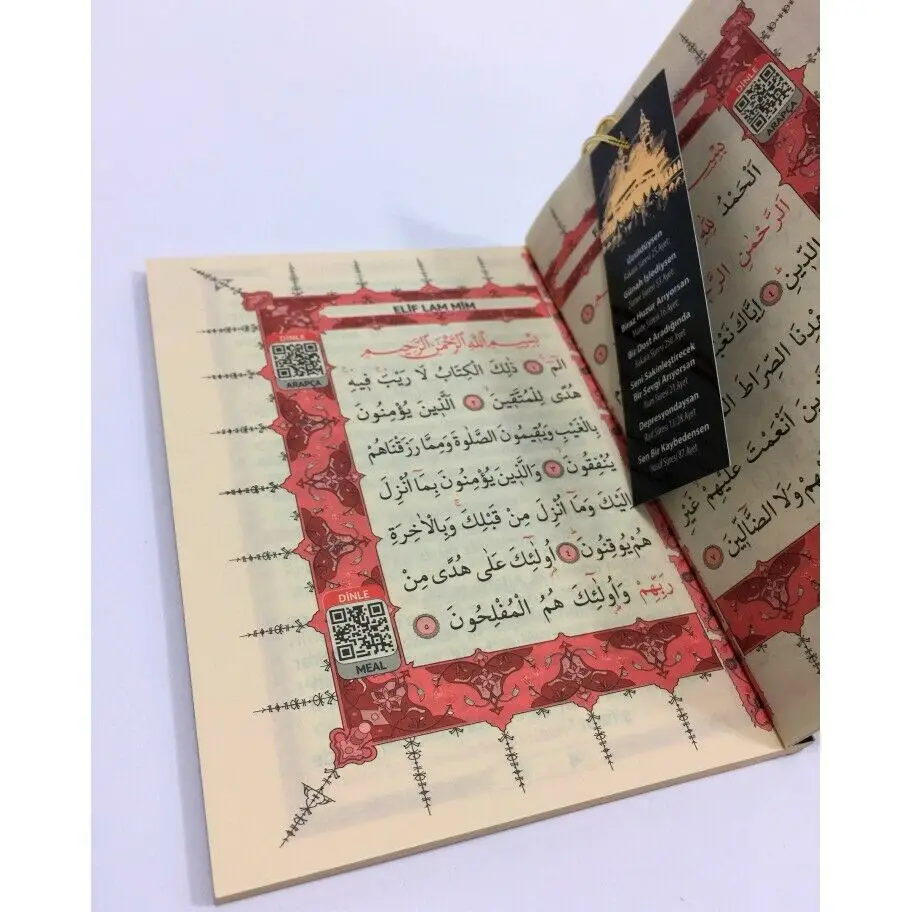 DİNLE
ARAPÇA
اَلْحَمْدُ لِلّٰهِ
اَلرَّحْمٰنِ
الدِّينِ ٤ اِيَّاكَ
الصِّرَاطَ
اَنْعَمْتَ عَلَيْهِمْ غَيْرِ
وَلَا الضَّٓالِّينَ ٧
Üzüldüysen
Günah İşlediysen
Zümer Suresi 53.Ayeti
Biraz Huzur Arıyorsan
Bir Dost Aradığında
Seni Sakinleştirecek
Bir Sevgi Arıyorsan
Rum Suresi 21.Ayet
Depresyondaysan
Rad Suresi 13/28.Ayet
Sen Bir Kaybedensen
Yusuf Suresi 87.Ayet
ELİF LAM MİM
DİNLE
ARAPÇA
بِسْمِ اللّٰهِ الرَّحْمٰنِ الرَّحِيمِ
الٓمٓ ١ ذٰلِكَ الْكِتَابُ لَا رَيْبَ فِيهِ
هُدًى لِلْمُتَّقِينَ ٢ اَلَّذِينَ يُؤْمِنُونَ
بِالْغَيْبِ وَيُقِيمُونَ الصَّلٰوةَ وَمِمَّا رَزَقْنَاهُمْ
يُنْفِقُونَ ٣ وَالَّذِينَ يُؤْمِنُونَ بِمَٓا اُنْزِلَ
اِلَيْكَ وَمَٓا اُنْزِلَ مِنْ قَبْلِكَ وَبِالْاٰخِرَةِ
هُمْ يُوقِنُونَ ٤ اُو۬لٰٓئِكَ عَلٰى هُدًى مِنْ
رَبِّهِمْ وَاُو۬لٰٓئِكَ هُمُ الْمُفْلِحُونَ ٥
DİNLE
MEAL